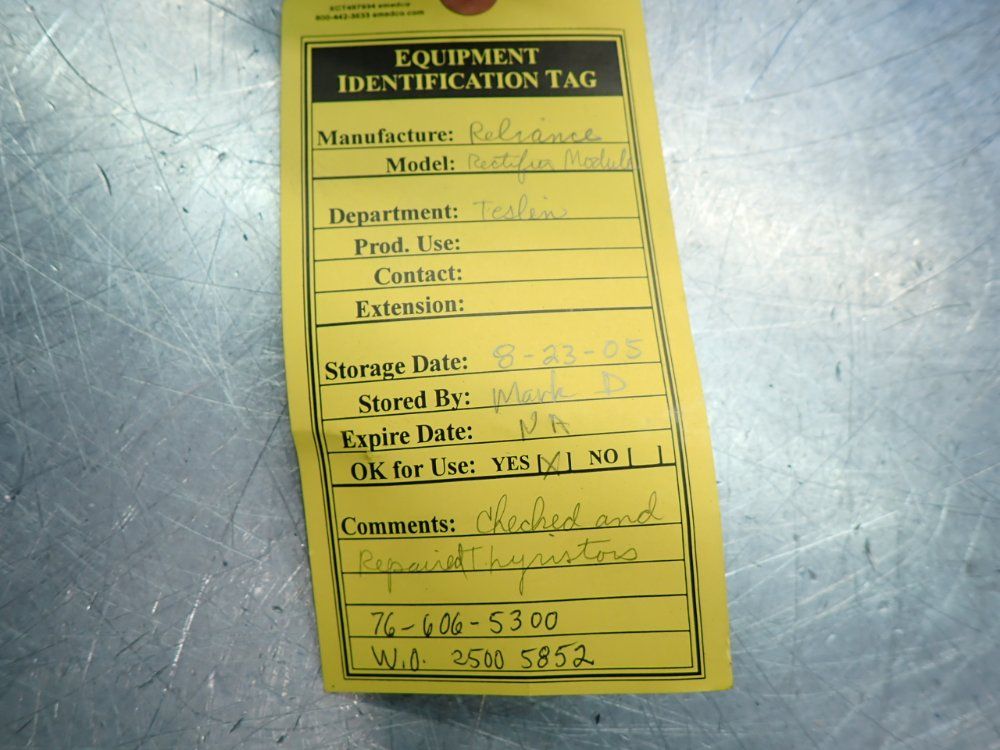 800-442-3633 emedco.com
EQUIPMENT
IDENTIFICATION TAG
Manufacture: Reliance
Model: Rectifier Module
Department: Teslin
Prod. Use:
Contact:
Extension:
Storage Date: 8-23-05
Stored By: Mark D
Expire Date: NA
OK for Use: YES [X] NO [ ]
Comments: Checked and
Repaired Thyristors
76-606-5300
W.O. 2500 5852